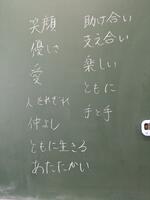 笑顔
優しさ
愛
人それぞれ
仲よし
ともに生きる
あたたかい
助け合い
支え合い
楽しい
ともに
手と手